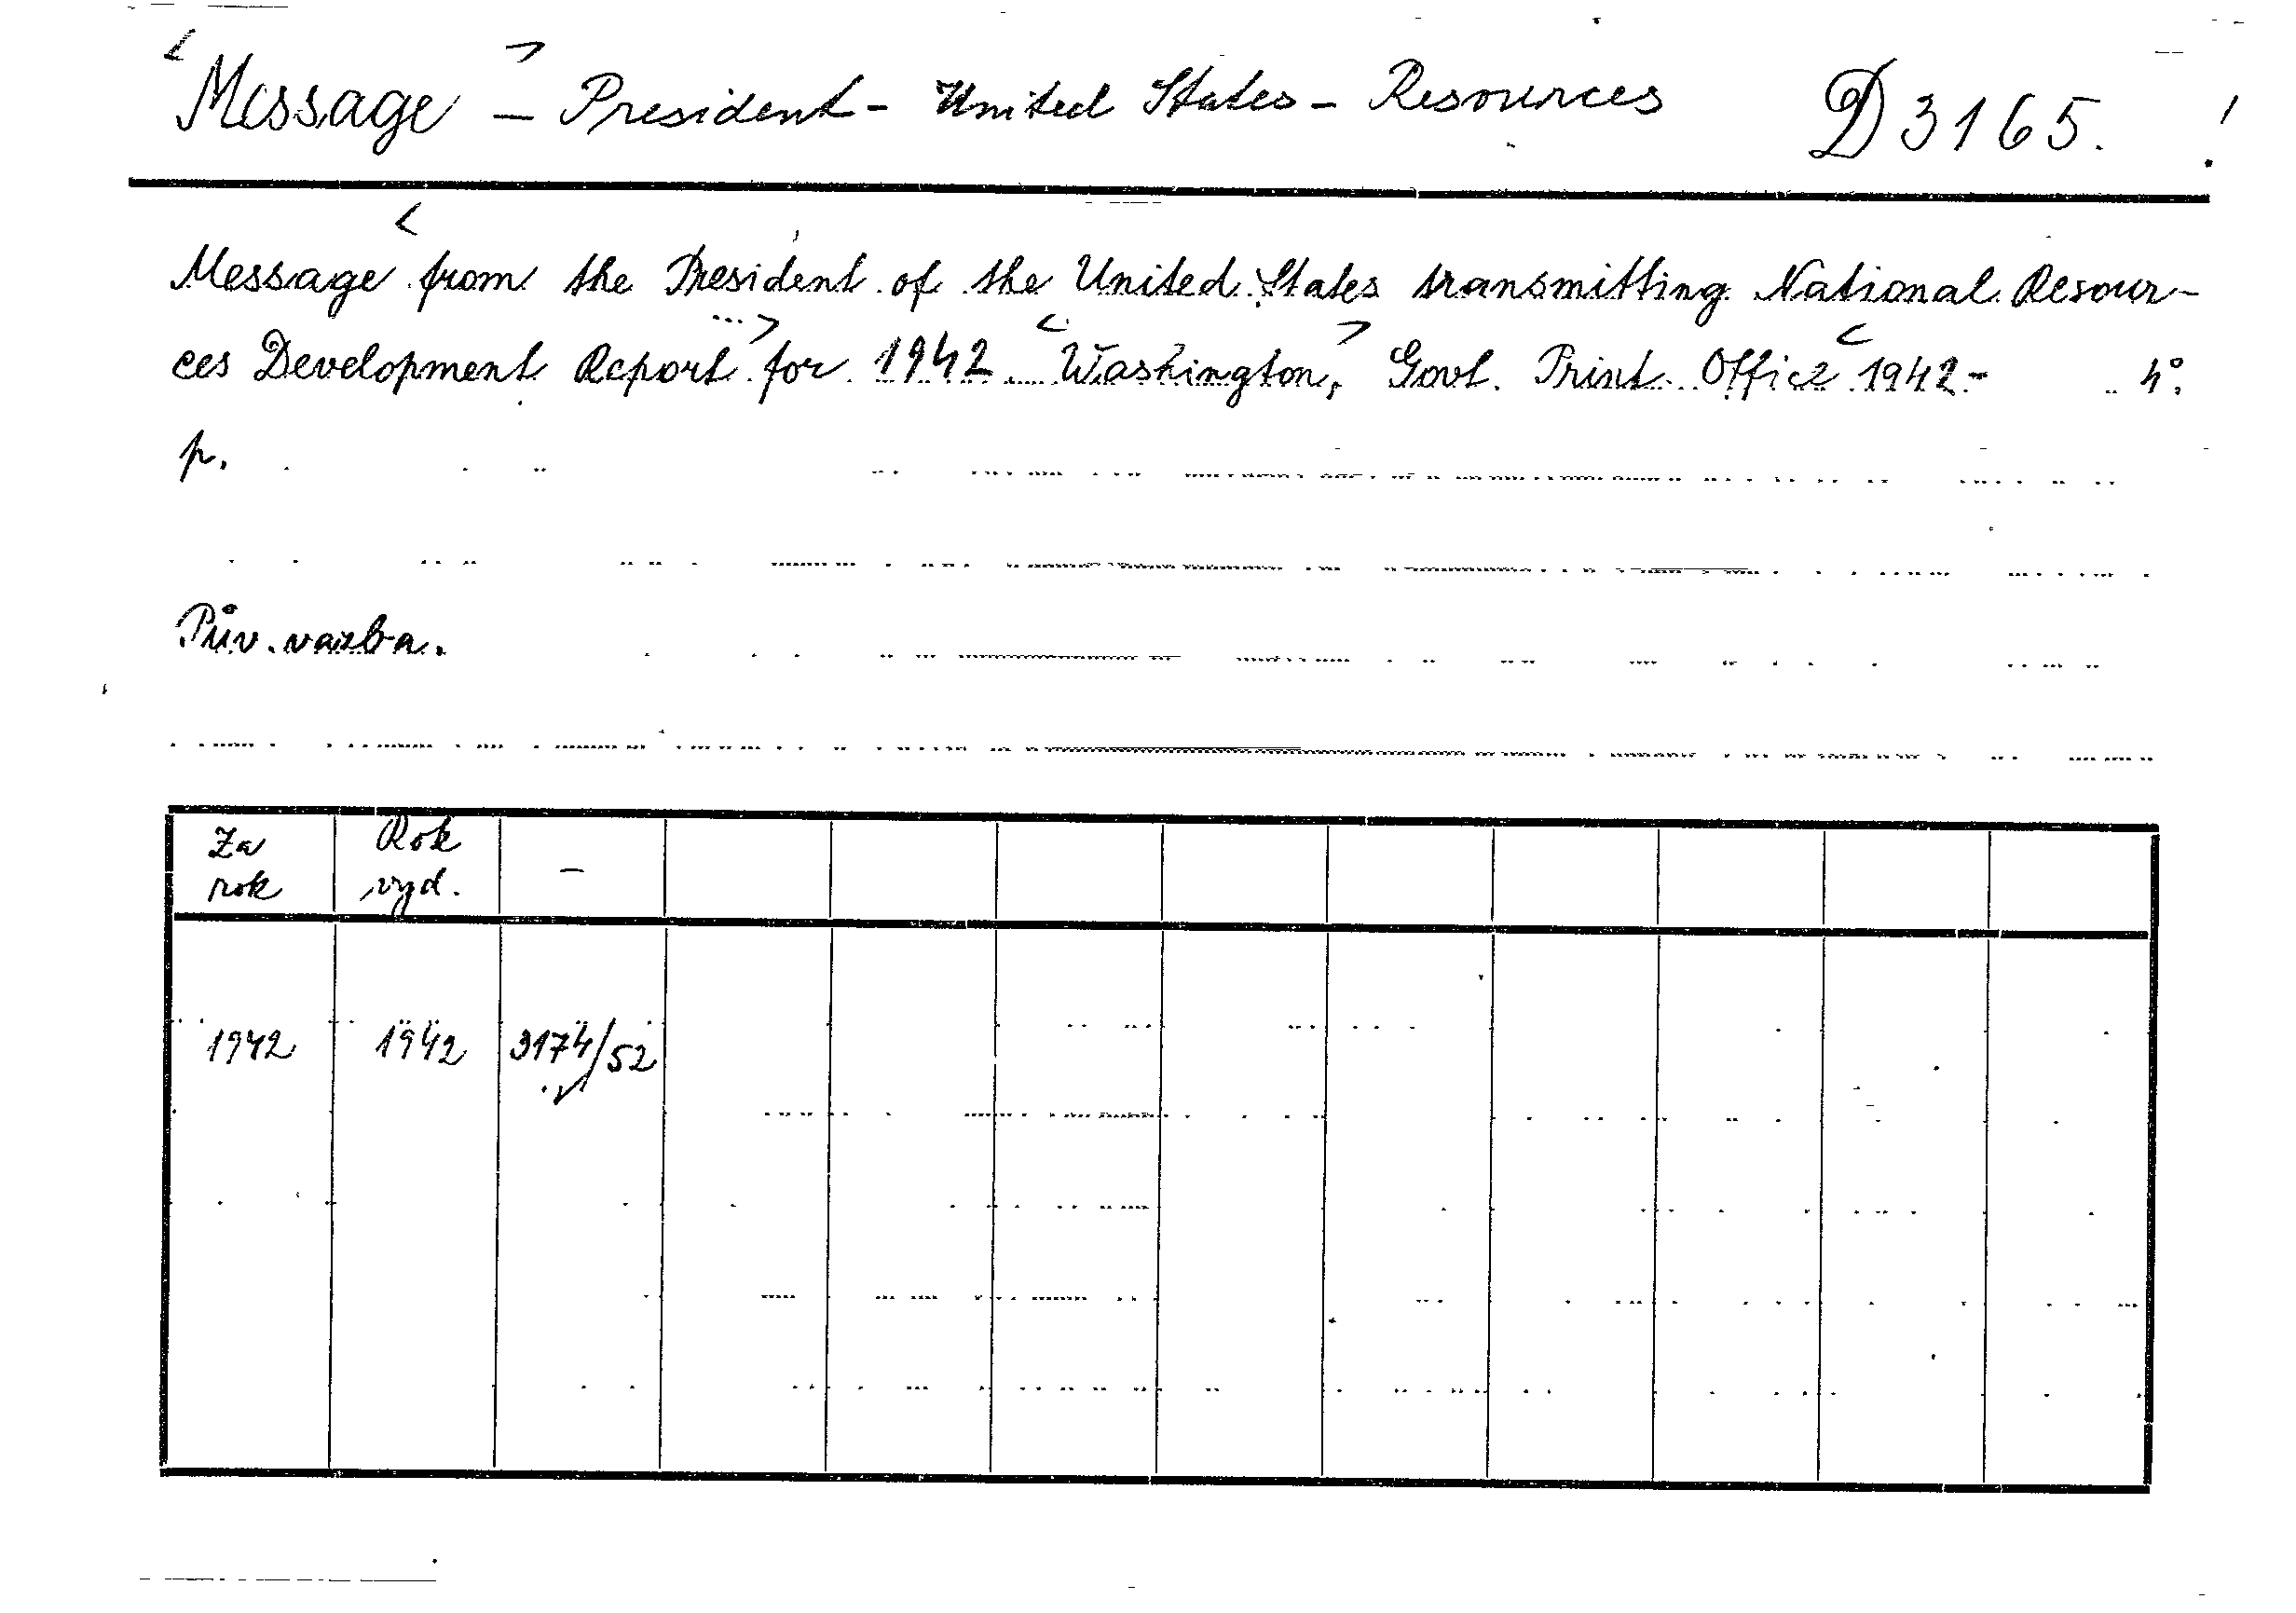 <Message> - President - United States - Resources D 3165. !
Message <from the President of the United States transmitting National Resour-
ces Development Report ...> for 1942. <Washington,> Govt. Print. Office <1942- 4°.
p.
Pův. vazba.
Za rok Rok vyd. -
1942 1942 3174/52